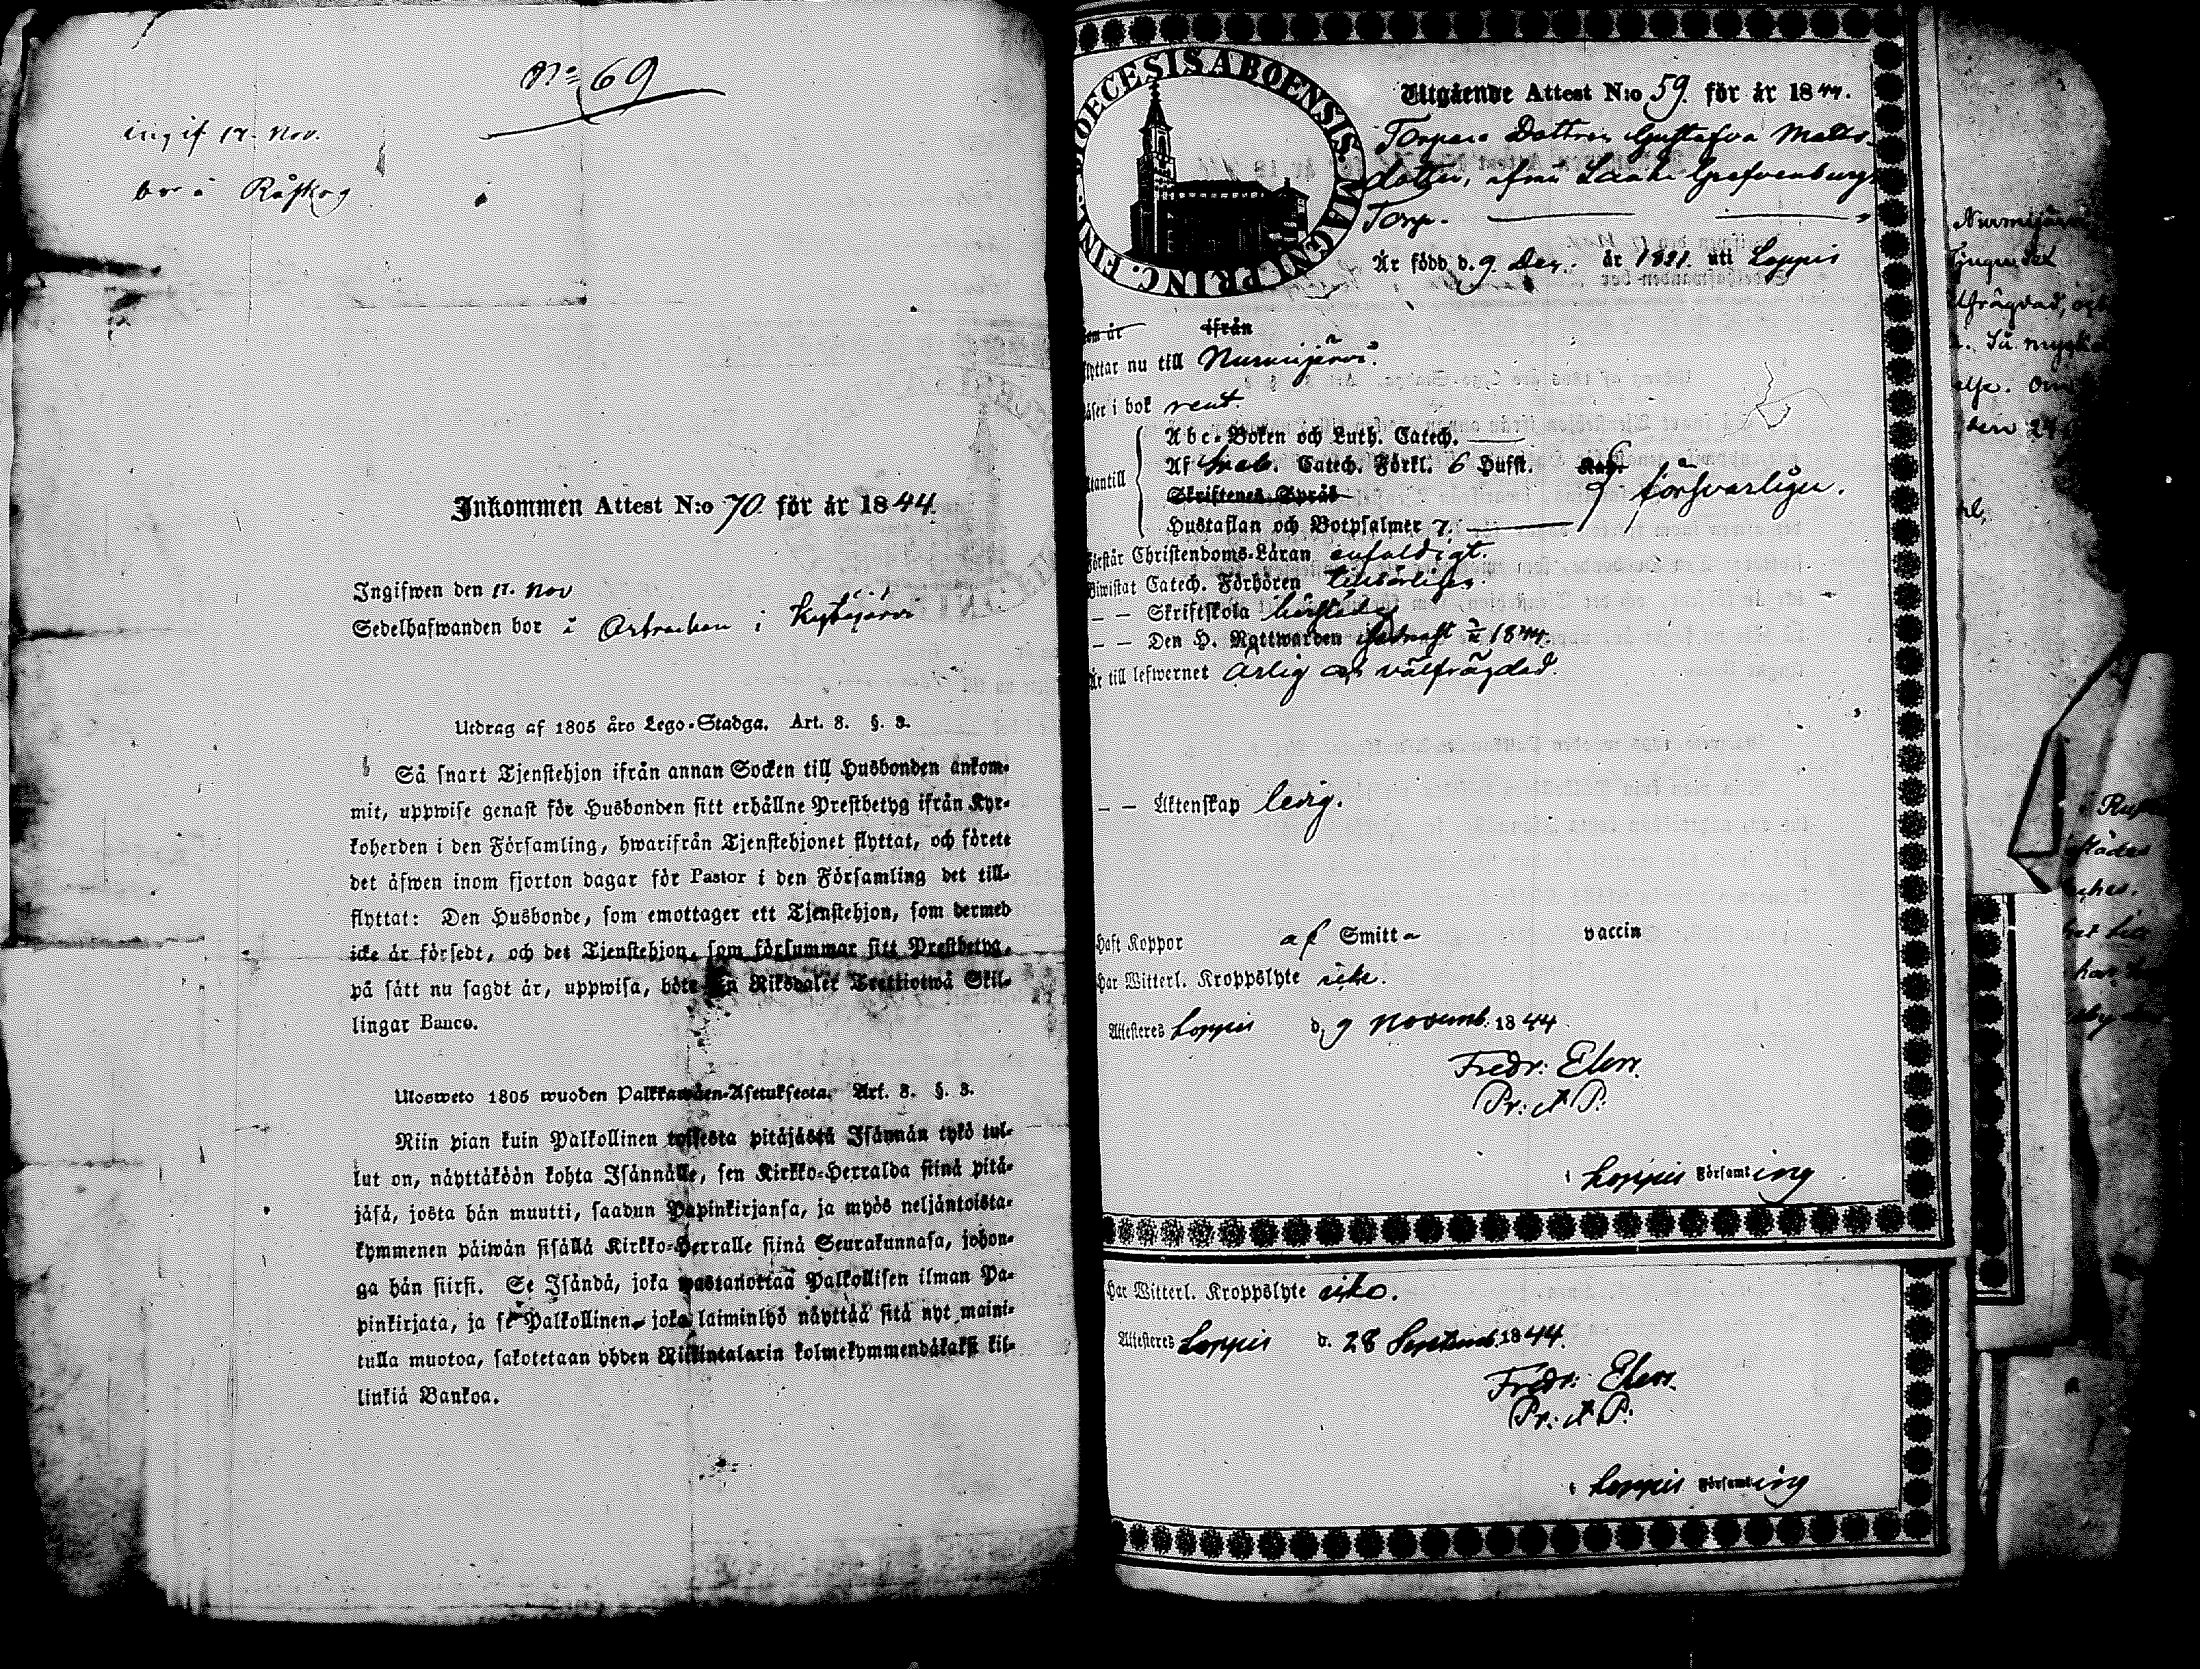 N:o 69
ingif 17. Nov.
bor i Råskog
Inkommen Attest N:o 70 för år 1844.
Ingifwen den 17. Nov
Sedelhafwanden bor i i Kytäjärvi
Utdrag af 1805 års Lego-Stadga. Art. 3. §. 3.
Så snart Tjenstehjon ifrån annan Socken till Husbonden ankom-
mit, uppwise genast för Husbonden sitt erhållne Prestbetyg ifrån Kyr-
koherden i den Församling, hwarifrån Tjenstehjonet flyttat, och förete
det äfwen inom fjorton dagar för Pastor i den Församling det till-
flyttat: Den Husbonde, som emottager ett Tjenstehjon, som dermed
icke är försedt, och det Tjenstehjon, som försummar sitt Prestbetyg,
på sätt nu sagdt är, uppwisa, böte En Riksdaler Trettiotwå Skil-
lingar Banco.
Ulosweto 1805 wuoden Palkkawäen-Asetuksesta. Art. 3. §. 3.
Niin pian kuin Palkollinen toisesta pitäjästä Isännän tykö tul-
lut on, näyttäköön kohta Isännälle, sen Kirkko-Herralda siinä pitä-
jäsä, josta hän muutti, saadun Papinkirjansa, ja myös neljäntoista-
kymmenen päiwän sisällä Kirkko-Herralle siinä Seurakunnasa, johon-
ga hän siirsi. Se Isändä, joka wastanottaa Palkollisen ilman Pa-
pinkirjata, ja se Palkollinen, joka laiminlyö näyttää sitä nyt maini-
tulla muotoa, sakotetaan yhden Riikintalarin kolmekymmendäkaksi kil-
linkiä Bankoa.
DIOECESIS ABOENSIS. MAGNI PRINC. FINL.
Utgående Attest N:o 59. för år 1844.
Torpare Dottren Gustafva Matts-
dotter, ifrån Laaka Grefvenburgs
Torp.
Är född d. 9. Dec. år 1821. uti Loppis
kom år ifrån
flyttar nu till Nurmijärvi.
läser i bok rent.
Utantill
Abc-Boken och Luth. Catech.
Af Sveb. Catech. Förkl. 6 Hufst. Kap.
Skriftenes Språk
försvarligen.
Hustaflan och Botpsalmer 7.
Förstår Christendoms-Läran enfaldigt.
Biwistat Catech. Förhören tillbörligen.
– – Skriftskola
– – Den H. Nattwarden sednast 1844.
Är till lefwernet ärlig och välfrägdad.
– – Äktenskap ledig.
Haft Koppor af Smitta vaccin
Har Witterl. Kroppslyte icke.
Attesteras Loppis d. 9 Novemb. 1844
Fredr: Elers.
Pr: A P:
i Loppis Församling
Har Witterl. Kroppslyte icke.
Attesteras Loppis d. 28 Septemb. 1844.
Fredr: Elers.
Pr: A P:
i Loppis Församling
Nurmijärvi